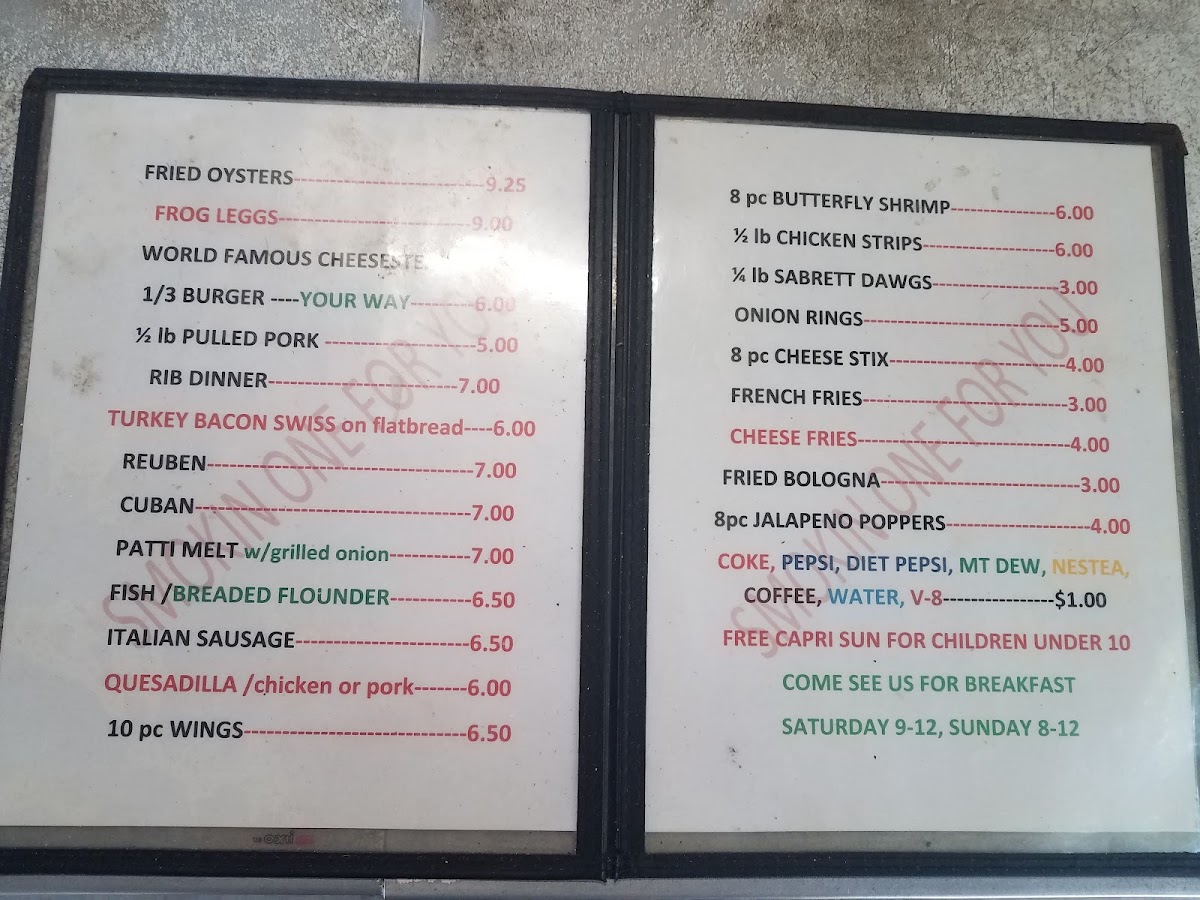 FRIED OYSTERS--------------------------9.25
FROG LEGGS--------------------------9.00
WORLD FAMOUS
1/3 BURGER ----YOUR WAY----------6.00
½ lb PULLED PORK --------------------5.00
RIB DINNER-------------------------7.00
TURKEY BACON SWISS on flatbread----6.00
REUBEN-----------------------------------7.00
CUBAN------------------------------------7.00
PATTI MELT w/grilled onion-----------7.00
FISH /BREADED FLOUNDER-----------6.50
ITALIAN SAUSAGE-----------------------6.50
QUESADILLA /chicken or pork-------6.00
10 pc WINGS-----------------------------6.50
SMOKIN ONE FOR YOU
8 pc BUTTERFLY SHRIMP--------------6.00
½ lb CHICKEN STRIPS-----------------6.00
¼ lb SABRETT DAWGS----------------3.00
ONION RINGS--------------------------5.00
8 pc CHEESE STIX-----------------------4.00
FRENCH FRIES---------------------------3.00
CHEESE FRIES----------------------------4.00
FRIED BOLOGNA--------------------------3.00
8pc JALAPENO POPPERS-------------------4.00
COKE, PEPSI, DIET PEPSI, MT DEW, NESTEA,
COFFEE, WATER, V-8----------------$1.00
FREE CAPRI SUN FOR CHILDREN UNDER 10
COME SEE US FOR BREAKFAST
SATURDAY 9-12, SUNDAY 8-12
SMOKIN ONE FOR YOU